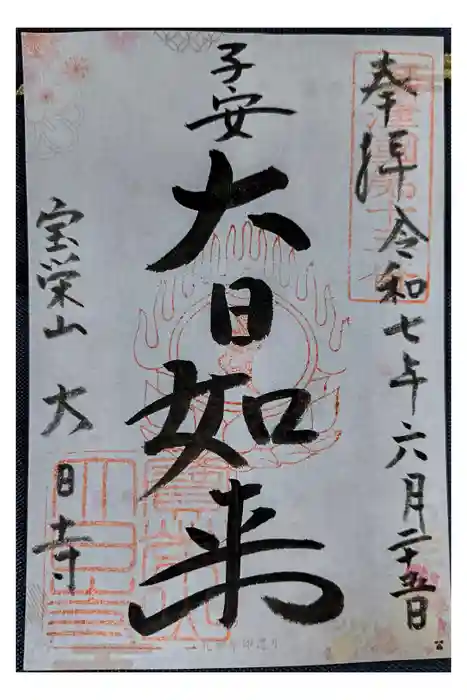 奉拝 令和七年六月二十五日
子安
大日如来
宝栄山 大日寺